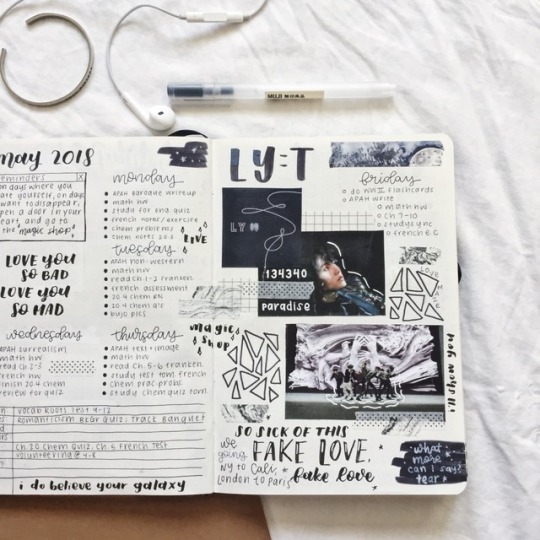 MUJI
may 2018
reminders
on days where you
hate yourself, on days
want to disappear,
open a door in your
heart, and go to
the "magic shop"
LOVE YOU
SO BAD
LOVE YOU
SO MAD
wednesday
APAH surrealism
math hw
read ch 2-3
french hw
finish 20.4 chem
review for quiz
monday
APAH baroque writeup
math hw
study for eng quiz
french notes/exercise
chem problems
chem notes 20.3
LIVE
tuesday
APAH non-western
math hw
read ch 1-2 franken.
french assessment
20.4 chem RN
20.4 chem Q's
bujo pics
thursday
APAH text + image
math hw
read ch. 5-6 franken.
study test tom french
chem prac probs.
study chem quiz tom.
vocab Roots Test 9-12
Romanticism BKGR Quiz; Track Banquet
Ch. 20 Chem Quiz, Ch. 5 French Test
volunteering @ 4-8
i do believe your galaxy
LY:T
friday
do WWII flashcards
APAH write
math hw
ch 7-10
studysync
french B.C
LY
134340
paradise
Love
me
magic
shop
i'll show you
SO SICK OF THIS
FAKE LOVE,
fake love
we
going
NY to Cali,
London to Paris
what
more
can i say?
tear